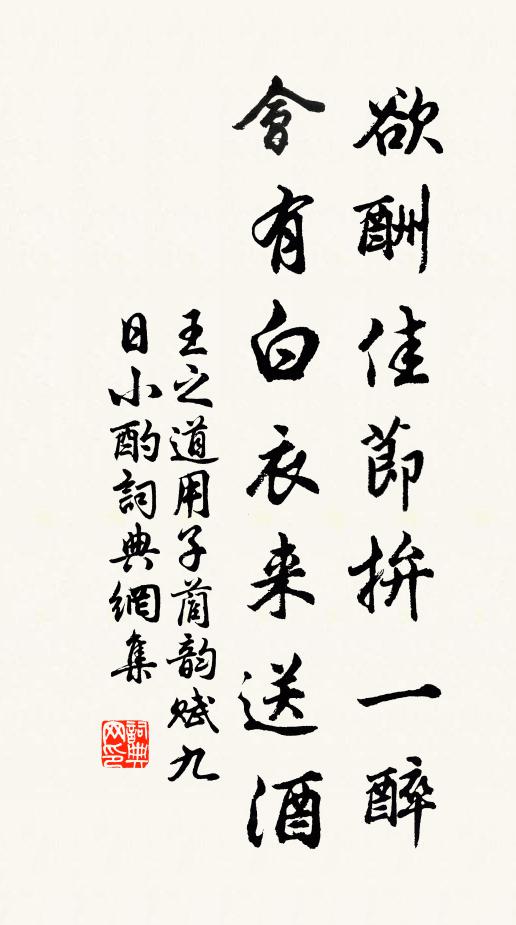 欲酬佳節拚一醉
會有白衣来送酒
王之道用子蕳韵賦九
日小酌詞典網集
詞典
网印